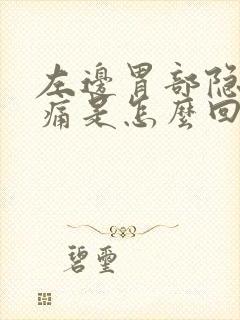 左邊胃部隐
痛是怎麼回
碧璽